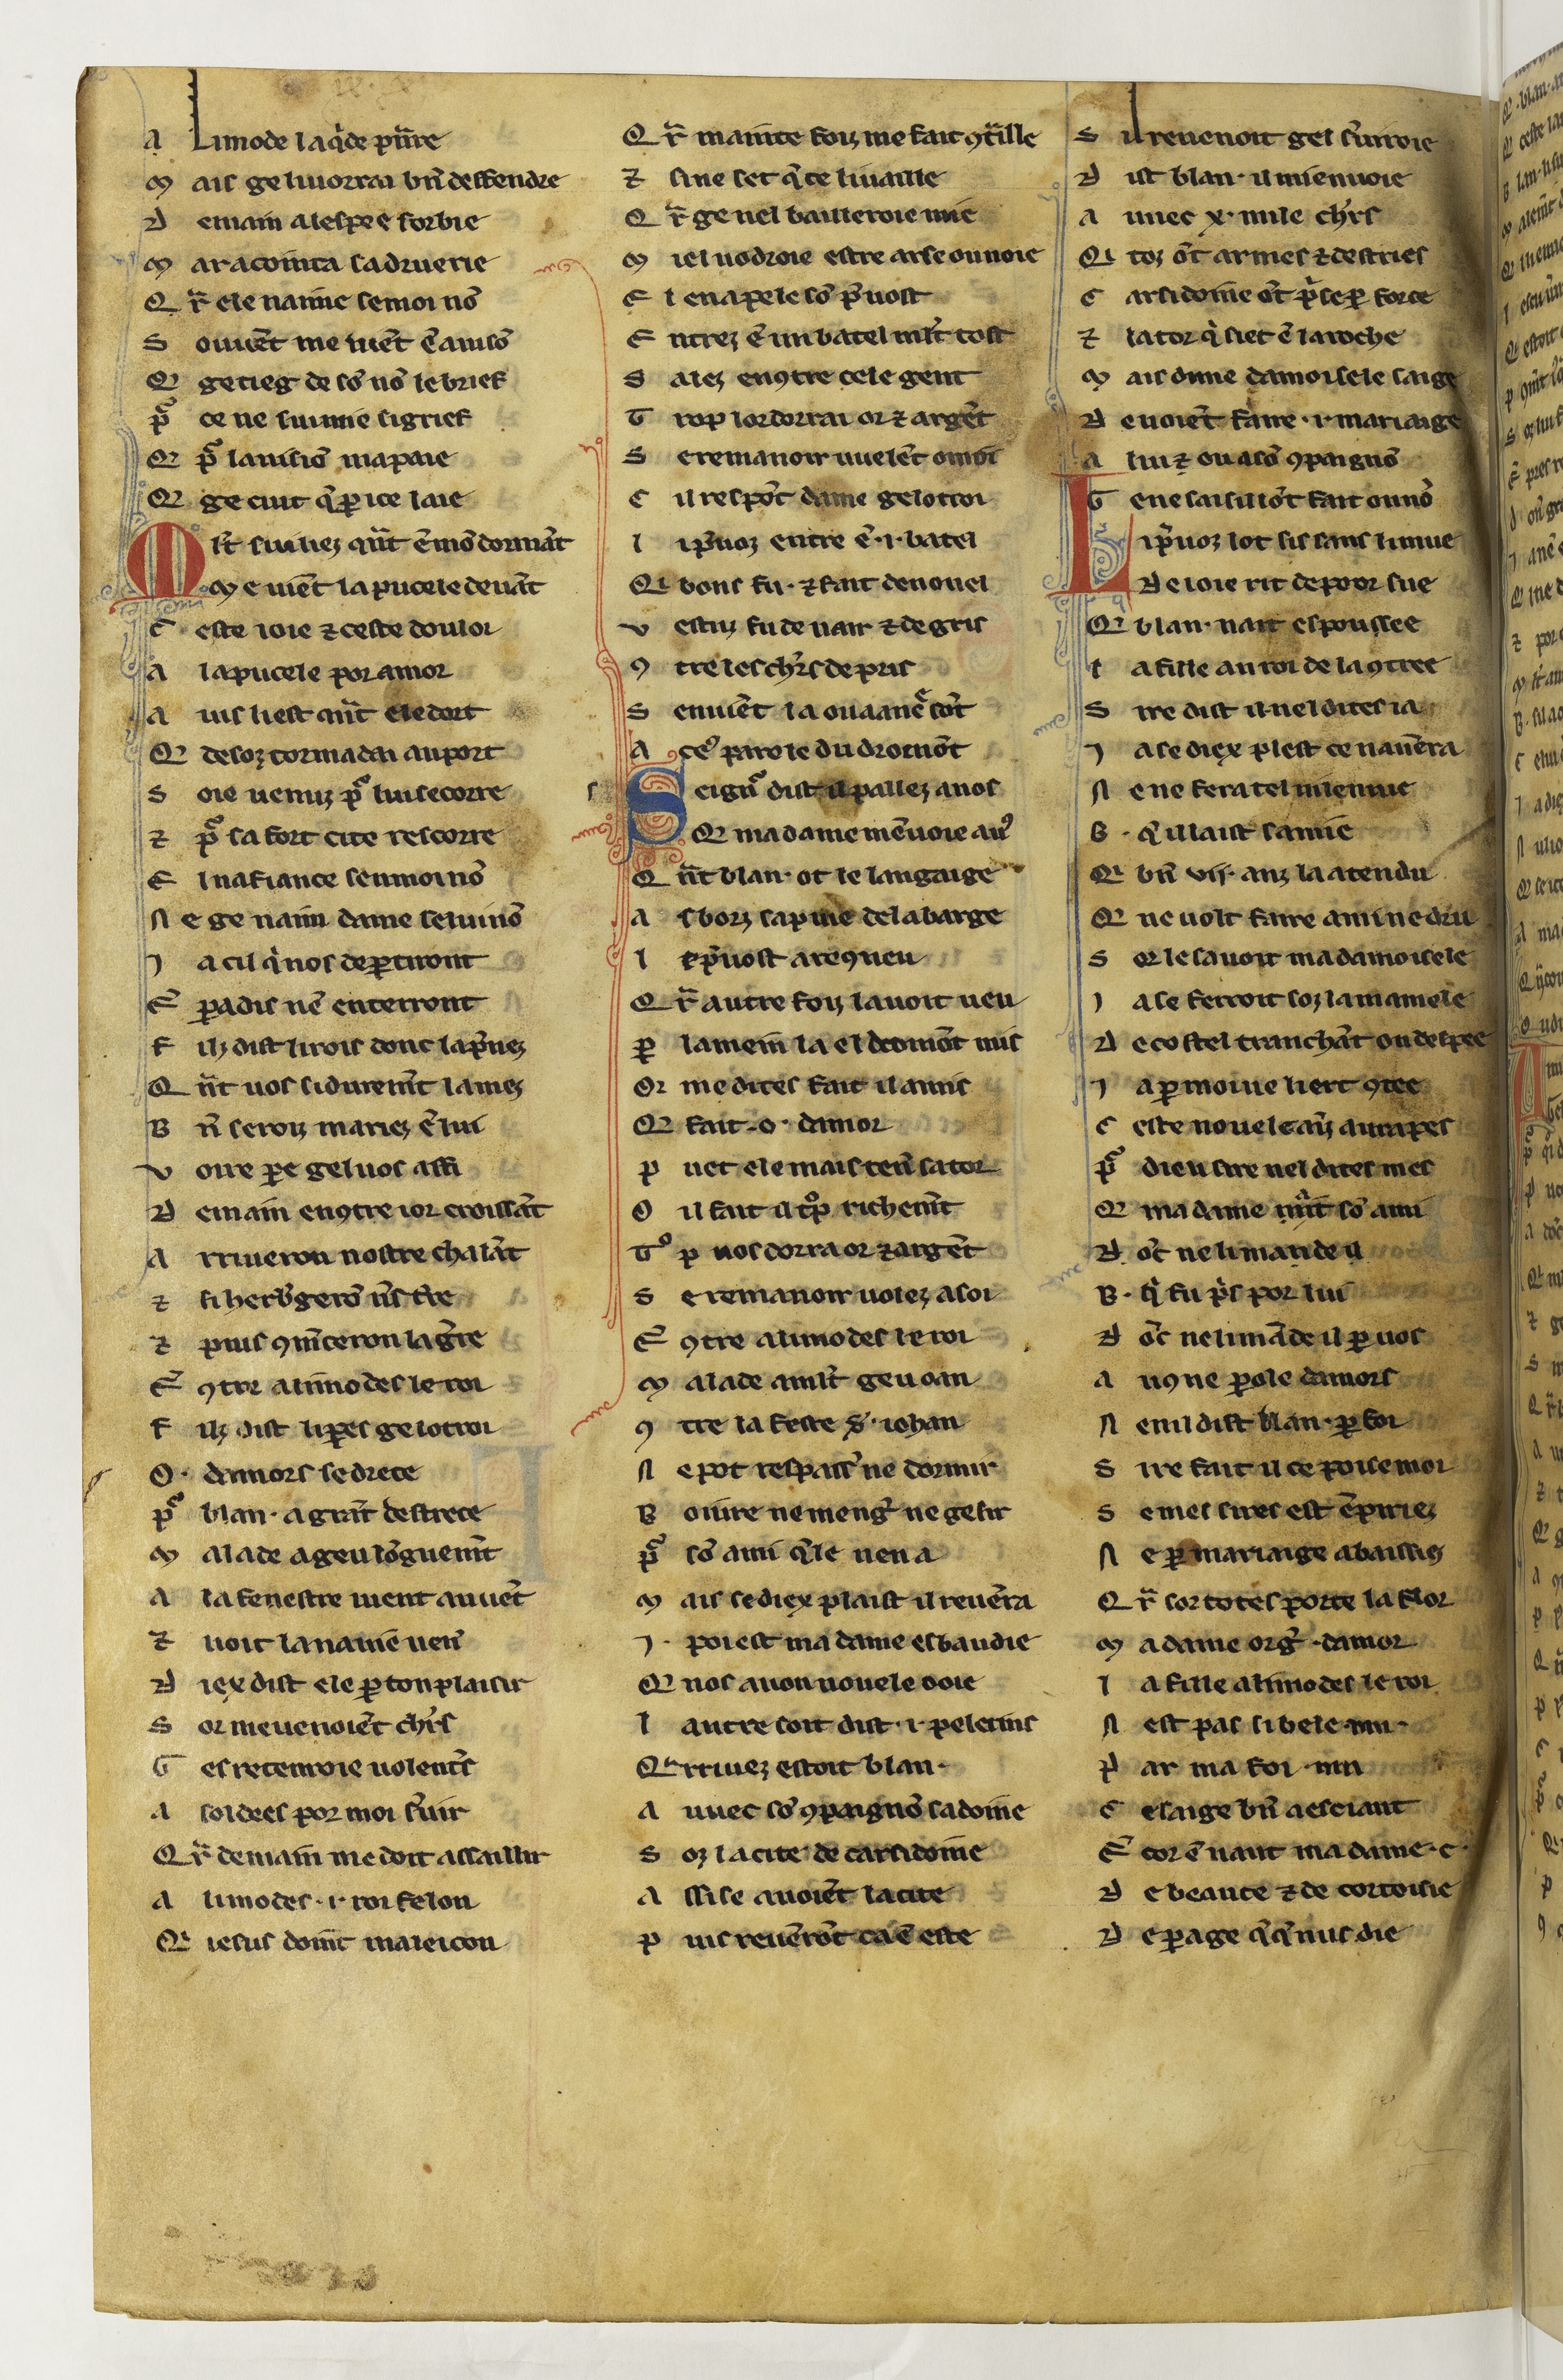 A Limode la q̍de pn̄re
M ais ge li uorrai bn̄ deffendre
D emain a lespee forbie
M ar acointa sa druerie
Q r̄ ele naime se moi nō
S ouuēt me uiēt ē auisō
Q ge tieg de sō nō le brief
Q ge cuit q̄ ꝑ ice laie
Mlt̄ sui liez qn̄t ē mō dormāt
M e uiēt la pucele deuāt
C este ioie ⁊ ceste doulor
A la pucele por amor
A uis li est qn̄t ele dort
Q desoz tormadai au port
S oie uenuz pᷣ lui secorre
⁊ pᷣ sa fort cite rescorre
E l na fiance seu moi nō
N e ge naim dame se lui nō
J a cil q̍ nos departiront
E ̄ paradis nē enterront
F ilz dist li rois donc la pn̄ez
Q n̄t uos si durem̄t lamez
B n̄ seroiz mariez ē lui
V oire pere gel uos affi
D emain enꝯtre ior croissāt
A rriueron nostre chalāt
⁊ si herb̓gerō n̄s tr̄e
⁊ puis ꝯm̄ceron la gr̄re
E ̄ ꝯtor alimodes le roi
F ilz dist li peres ge lotroi
O · damors se drece
pᷣ blan· a grāt destrece
M alade a geu lōguem̄t
A la fenestre uient au uēt
⁊ uoit la nauie uen̄
D iex dist ele ꝑ ton plaisir
S or me uenoiēt ch̓rs
G es retenroie uolent̄s
A soldees por moi s̓uir
Q r̄ demain me doit assaillir
A limodes ·i· roi felon
Q iesus doint maleicon
Q r̄ mainte foiz me fait ꝯtraille
⁊ si ne set q̄ ce li uaille
Q r̄ ge nel bailleroie mie
M iel uodroie estre arse ou noie
E l en apele sō p̓uost
E ntrez ē un batel mlt̄ tost
S alez enꝯtre cele gent
T rop lor dorrai or ⁊ argēt
S e remanoir uuelēt o moi
C il respōt dame ge lotroi
L i p̓uoz entre ē ·i· batel
Qi bons fu· ⁊ fait de nouel
V estuz fu de uair ⁊ de gris
ꝯ tre les ch̓rs de pris
S en uiēt la ou a anc̄ sōt
A ces parole du dromōt
Seignᷣ dist il pallez a nos
Q ma dame mēuoie a uꝰ
Q n̄t blan· ot le langaige
A s borz sapuie de la barge
L e p̓uost a reꝯneu
Q r̄ autre foiz lauoit ueu
ꝑ la mein la el dromōt mis
Or me dites fait il amis
Q fait ·o· damor
P uet ele mais ten̄ sa tor
O il fait il tᷣp richem̄t
Tᷣ p uos dorra or ⁊ argēt
S e remanoir uolez a soi
E ̄ ꝯtre alimodes le roi
M alade a mlt̄ geu oan
ꝯ tre la feste s̄· iohan
N e pot respass̄ ne dormir
B oiure ne meng̓ ne gesir
pᷣ sō ami q̄le nen a
M ais se diex plaist il reuēra
J · poi est ma dame esbaudie
Q nos auon nouele oie
L autre soir dist ·i· pelerins
Q arriuez estoit blan·
A uuec sō ꝯpaignō sadoine
S oz la cite de carsidoine
A ssise auoiēt la cite
P uis reuērōt ca ē este
S il reuenoit gel s̓uiroie
D ist blan· il mi enuoie
A uuec ·x· mile ch̓rs
Qi toz ōt armes ⁊ destries
C arsidoine ōt p̓se ꝑ force
⁊ la tor q̍ siet ē la roche
M ais dune damoisele saige
D euoiēt faire ·i· mariaige
A lui ⁊ ou a sō ꝯpaignō
G e ne sai sil lōt fait ou nō
Li p̓uoz lot sis sans limue
D e ioie rit de poor sue
Q blan· nait espousee
L a fille au roi de la ꝯtree
S ire dist il nel dites ia
J a se diex plest ce nauēra
N e ne fera tel mienuie
B · q̍l laist samie
Qi bn̄ ·vii· anz la atendu
Q ne uolt faire ami ne dru
S or le sauoit ma damoisele
J a se ferroit soz la mamele
D e costel tranchāt ou despee
J a ꝑ moi ne li ert ꝯtee
C este nouele
pᷣ dieu sire nel dites mes
Q ma dame sō ami
D ōt ne li mande il
B · q̍ fu p̍s por lui
D ōt ne li māde il ꝑ uos
A uꝯne parole damors
N enil dist blan· ꝑ foi
S ire fait il ce poise moi
S e mes sires est ēpiriez
N e ꝑ mariaige abaissiez
Q r̄ sor totes porte la flor
M a dame org̓· damor
L a fille alimodes le roi
N est pas si bele
P ar ma foi
C e sai ge bn̄ a esciant
E ̄ cor ē uaut ma dame ·c·
D e beaute ⁊ de cortoisie
D e parage q̄ q̄ nus die